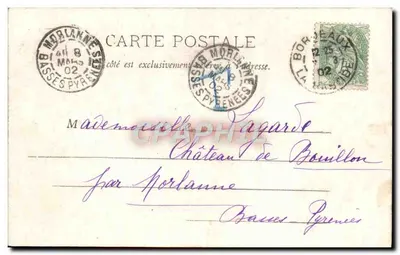 CARTE POSTALE
côté est exclusivement adresse.
MORLANNE
8
MARS
02
BASSES PYRENEES
MORLANNE
BASSES PYRENEES
BORDEAUX
02
Mademoiselle Lagarde
Château de Bouillon
par Morlanne
Basses Pyrénées